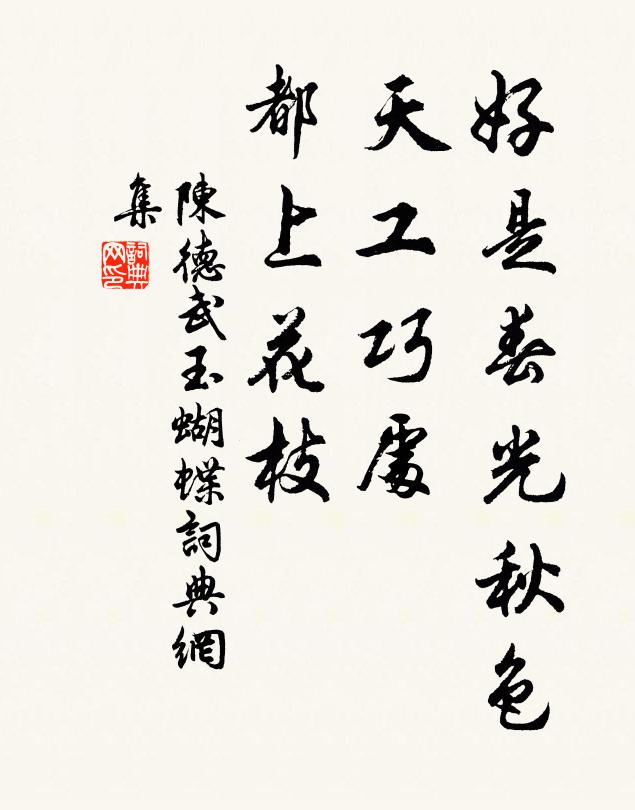 好是春光秋色
天工巧處
都上花枝
陳德武玉蝴蝶詞典網
集
詞典網印